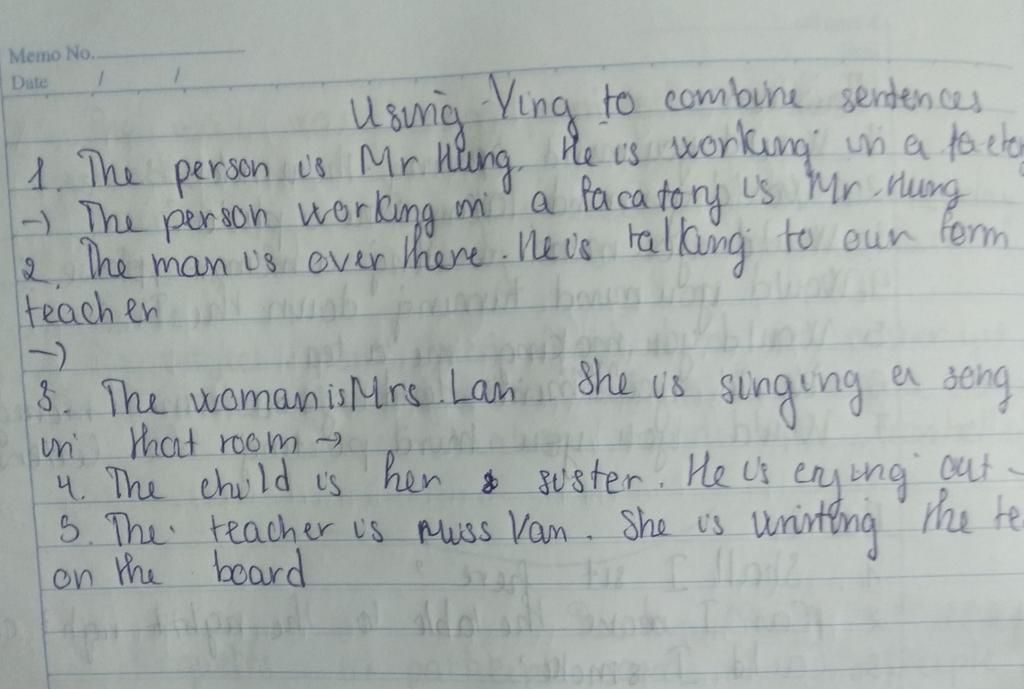 Memo No.
Date / /
Using Ving to combine sentences
1. The person is Mr Hung. He is working in a
-) The person working in a facatory is Mr. Hung
2. The man is over there. He is talking to our form
teacher
-)
3. The woman is Mrs. Lan She is singing a song
in that room →
4. The child is her sister. He is crying out
5. The teacher is Miss Van. She is writing the te
on the board